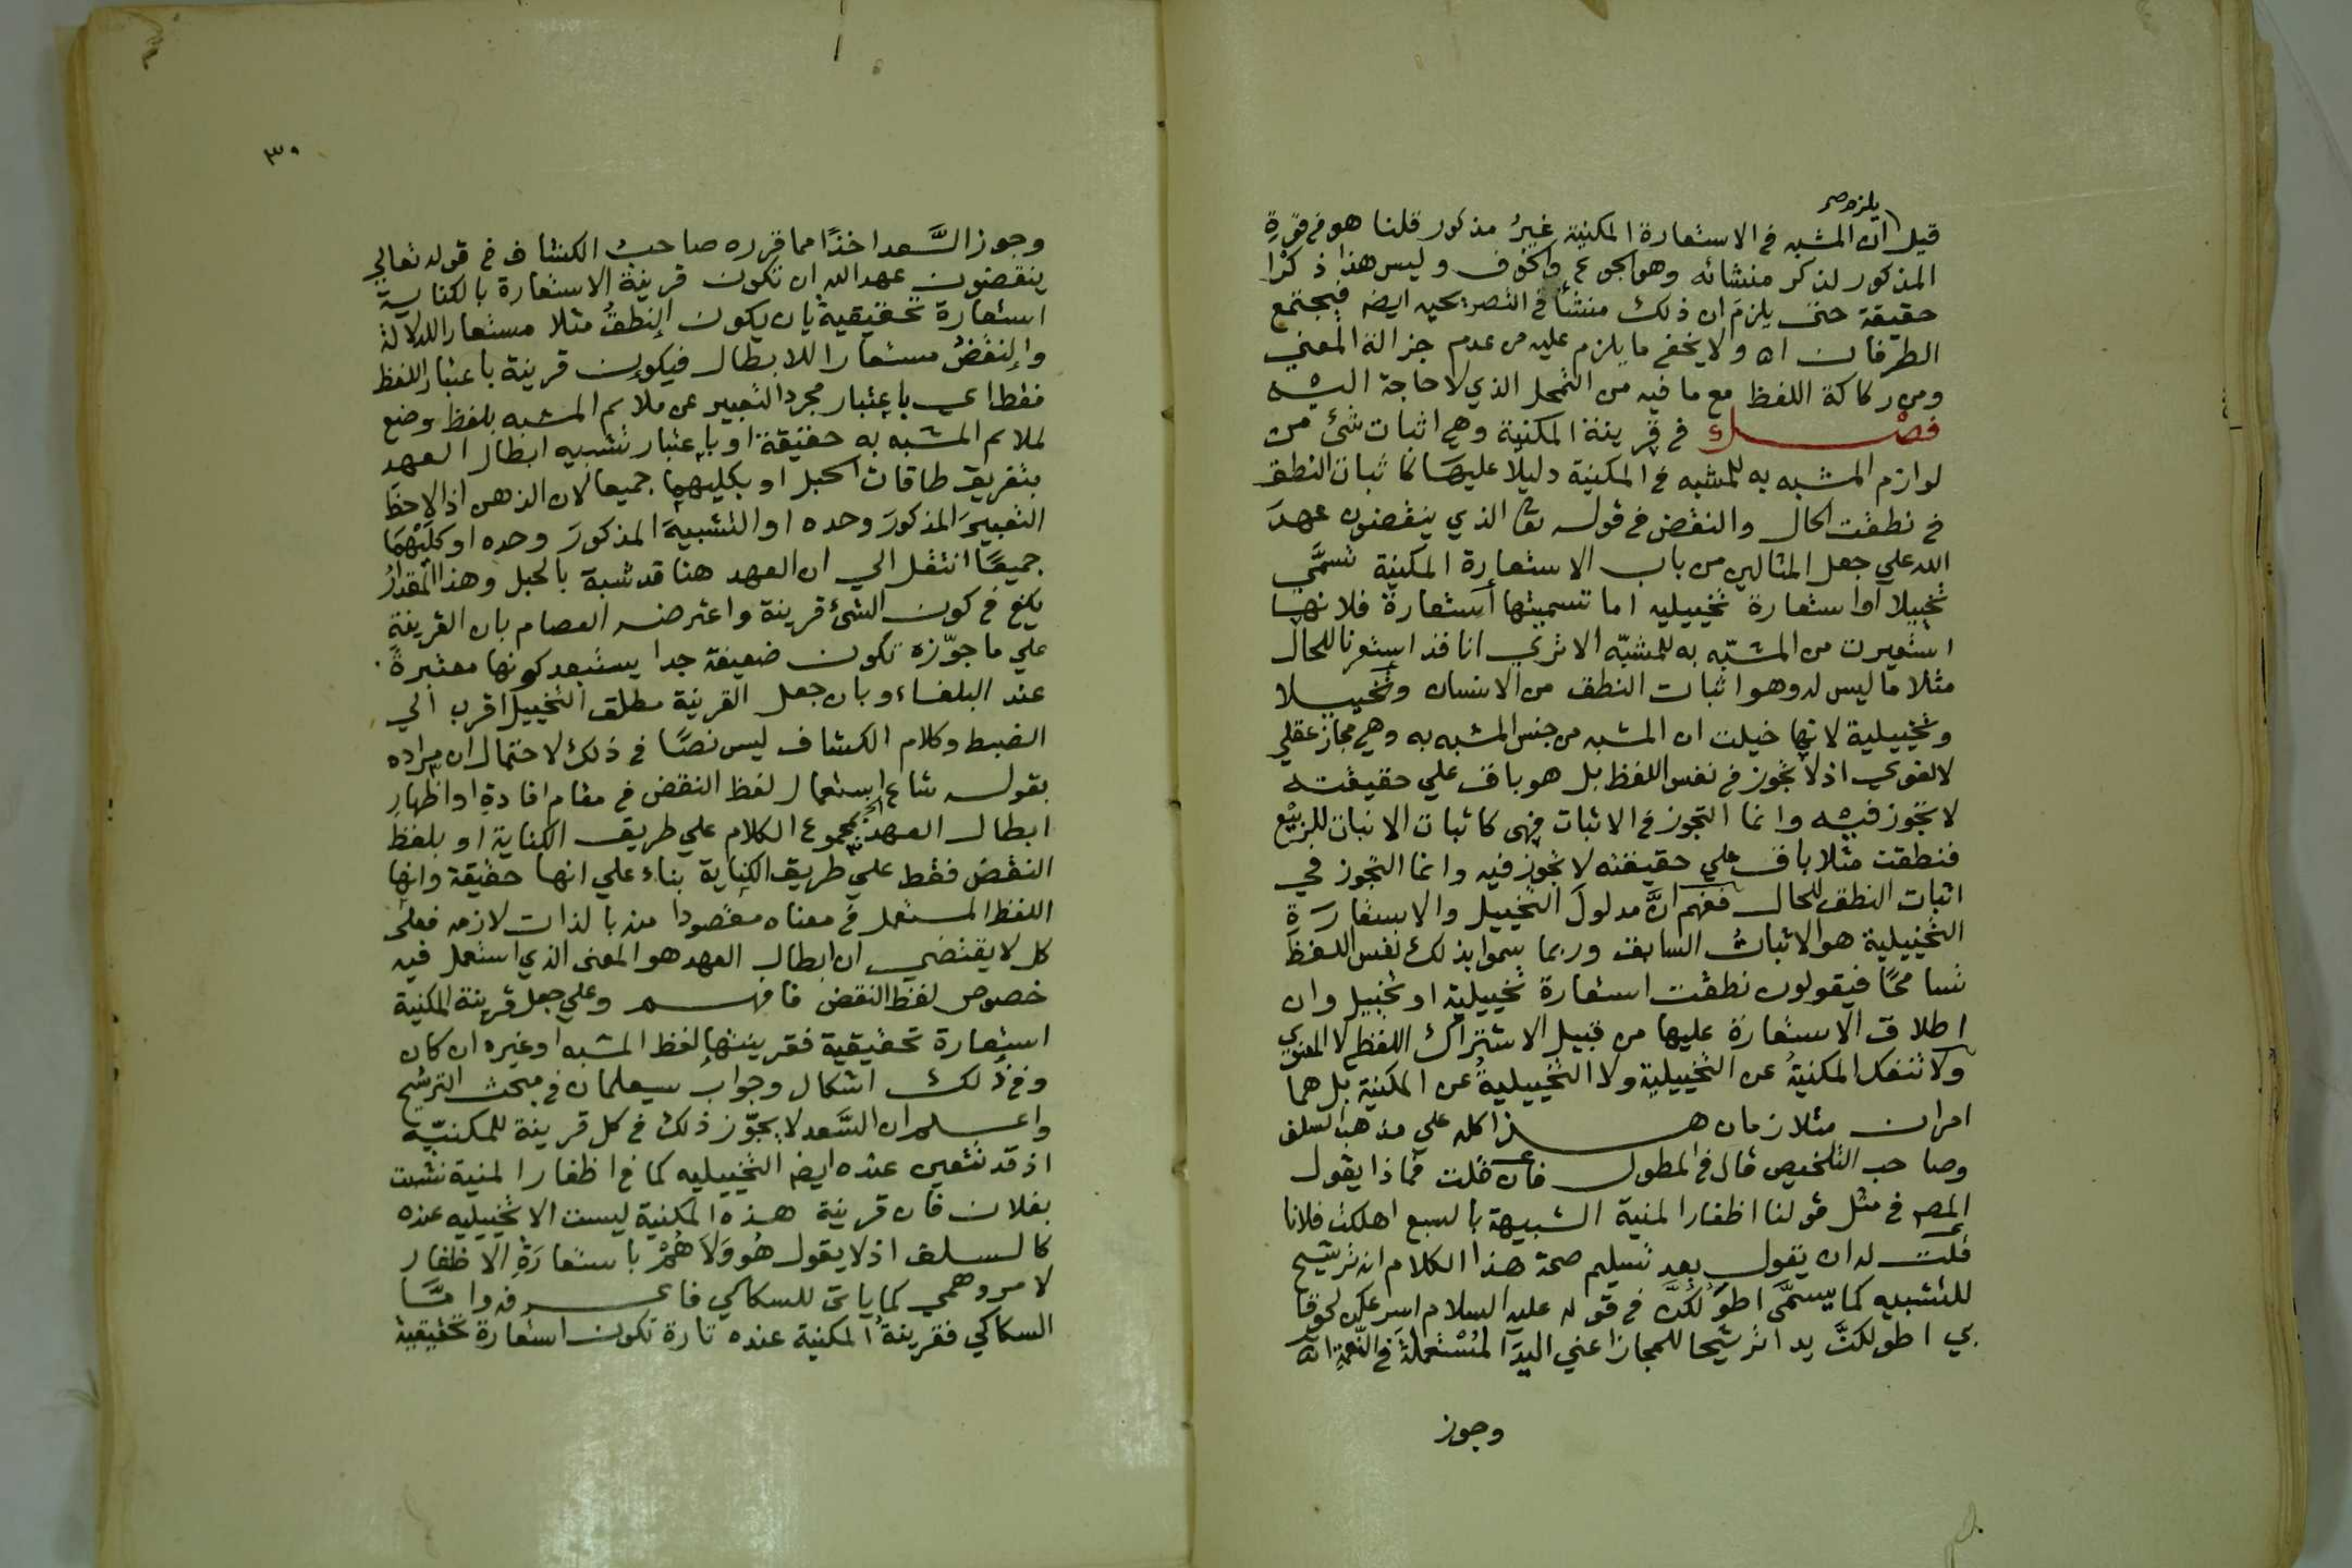 يلزم صح
قيل ان المشبه في الاستعارة المكنية غيرُ مذكور قلنا هو في قوةِ
المذكور لذكر منشائه وهو الجوع والخوف وليس هذا ذكرًا
حقيقة حتى يلزم ان ذلك منشأ في التصريحيه ايضه فيجتمع
الطرفان اه ولا يخفى ما يلزم عليه من عدم جزالة المعني
ومن ركاكة اللفظ مع ما فيه من التمحل الذي لا حاجة اليه
فصل في قرينة المكنية وهي اثبات شئ من
لوازم المشبه به للمشبه في المكنية دليلًا عليها كاثبات النطق
في نطقت الحال والنقض في قوله تعا الذي ينقضون عهدَ
الله علي جعل المثالين من باب الاستعارة المكنية تسمَّى
تخييلا او استعارة تخييليه اما تسميتها استعارة فلانها
استعيرت من المشبّه به للمشبّه الا تري انا قد استعرنا للحال
مثلا ما ليس له وهو اثبات النطق من الانسان وتخييلا
وتخييلية لانها خيلت ان المشبه من جنس المشبه به وهي مجاز عقلي
لا لغوي اذ لا تجوز في نفس اللفظ بل هو باق علي حقيقته
لا تجوز فيه وانما التجوز في الاثبات فهي كاثبات الانبات للربيْع
فنطقت مثلا باق علي حقيقته لا تجوز فيه وانما التجوز في
اثبات النطق للحال ففهم انَّ مدلولَ التخييل والاستعارَةِ
التخييلية هو الاثباتُ السابق وربما سموا بذلك نفس اللفظ
تسامحًا فيقولون نطقت استعارة تخييلية او تخييل وان
اطلاق الاستعارة عليها من قبيل الاشتراك اللفظي لا المعنوي
ولا تنفك المكنيةُ عن التخييليةِ ولا التخييليةُ عن المكنية بل هما
امران متلازمان هذا كله علي مذهب السلف
وصاحب التلخيص قال في المطول فان قلت فماذا يقول
المصه في مثل قولنا اظفار المنية الشبيهة بالسبع اهلكت فلانا
قلت له ان يقول بعد تسليم صحة هذا الكلام انه ترشيح
للتشبيه كما يسمَّى اطوَلكُنَّ في قوله عليه السلام اسرعكن لحوقا
بي اطولكنَّ يدا ترشيحا للمجاز اعني اليدَ المُسْتعملةَ في النّعمةِ اه
وجوز
٣٠
وجوز السَّعد اخذًا مما قرره صاحبُ الكشاف في قوله تعالي
ينقضون عهد الله ان تكون قرينة الاستعارة بالكناية
استعارة تحقيقية بان يكون النطقُ مثلا مستعارا للدلالة
والنقضُ مستعارا للابطال فيكون قرينة باعتبار اللفظ
فقط اي باعتبار مجرد التعبير عن ملايم المشبه بلفظ وضع
لملايم المشبه به حقيقة او باعتبار تشبيه ابطال العهد
بتفريق طاقات الحبل او بكليهما جميعا لان الذهن اذا لاحظ
التعبيرَ المذكورَ وحده او التشبيهَ المذكورَ وحده او كليْهمَا
جميعًا انتقل الي ان العهد هنا قد شبه بالحبل وهذا المقدارُ
يكفي في كون الشئ قرينة واعترضه العصام بان القرينةِ
علي ما جوّزه تكون ضعيفة جدا يستبعد كونها معتبرةً
عند البلغاء وبان جعل القرينة مطلق التخييل اقرب الي
الضبط وكلام الكشاف ليس نصًا في ذلك لاحتمال ان مراده
بقوله شاع استعمال لفظ النقض في مقام افادةِ او اظهارِ
ابطال العهد بمجموع الكلام علي طريق الكناية او بلفظ
النقض فقط علي طريق الكناية بناء علي انها حقيقة وانها
اللفظ المستعمل في معناه مقصودا منه بالذات لازمه فعلى
كل لا يقتضي ان ابطال العهد هو المعنى الذي استعمل فيه
خصوص لفظ النقض فافهم وعلي جعل قرينة المكنية
استعارة تحقيقية فقرينتها لفظ المشبه او غيره ان كان
وفي ذلك اشكال وجواب سيعلمان في مبحث الترشيح
واعلم ان السَّعد لا يجوّز ذلك في كل قرينة للمكنيّه
اذ قد تتعين عنده ايضه التخييليه كما في اظفار المنية نشبت
بفلان فان قرينة هذه المكنية ليست الا تخييليه عنده
كالسلف اذ لا يقول هُو وَلَا هُمْ باستعارَةِ الاظفار
لامر وهمي كما ياتى للسكاكي فاعرفه وامَّا
السكاكي فقرينةُ المكنية عنده تارة تكون استعارة تحقيقية